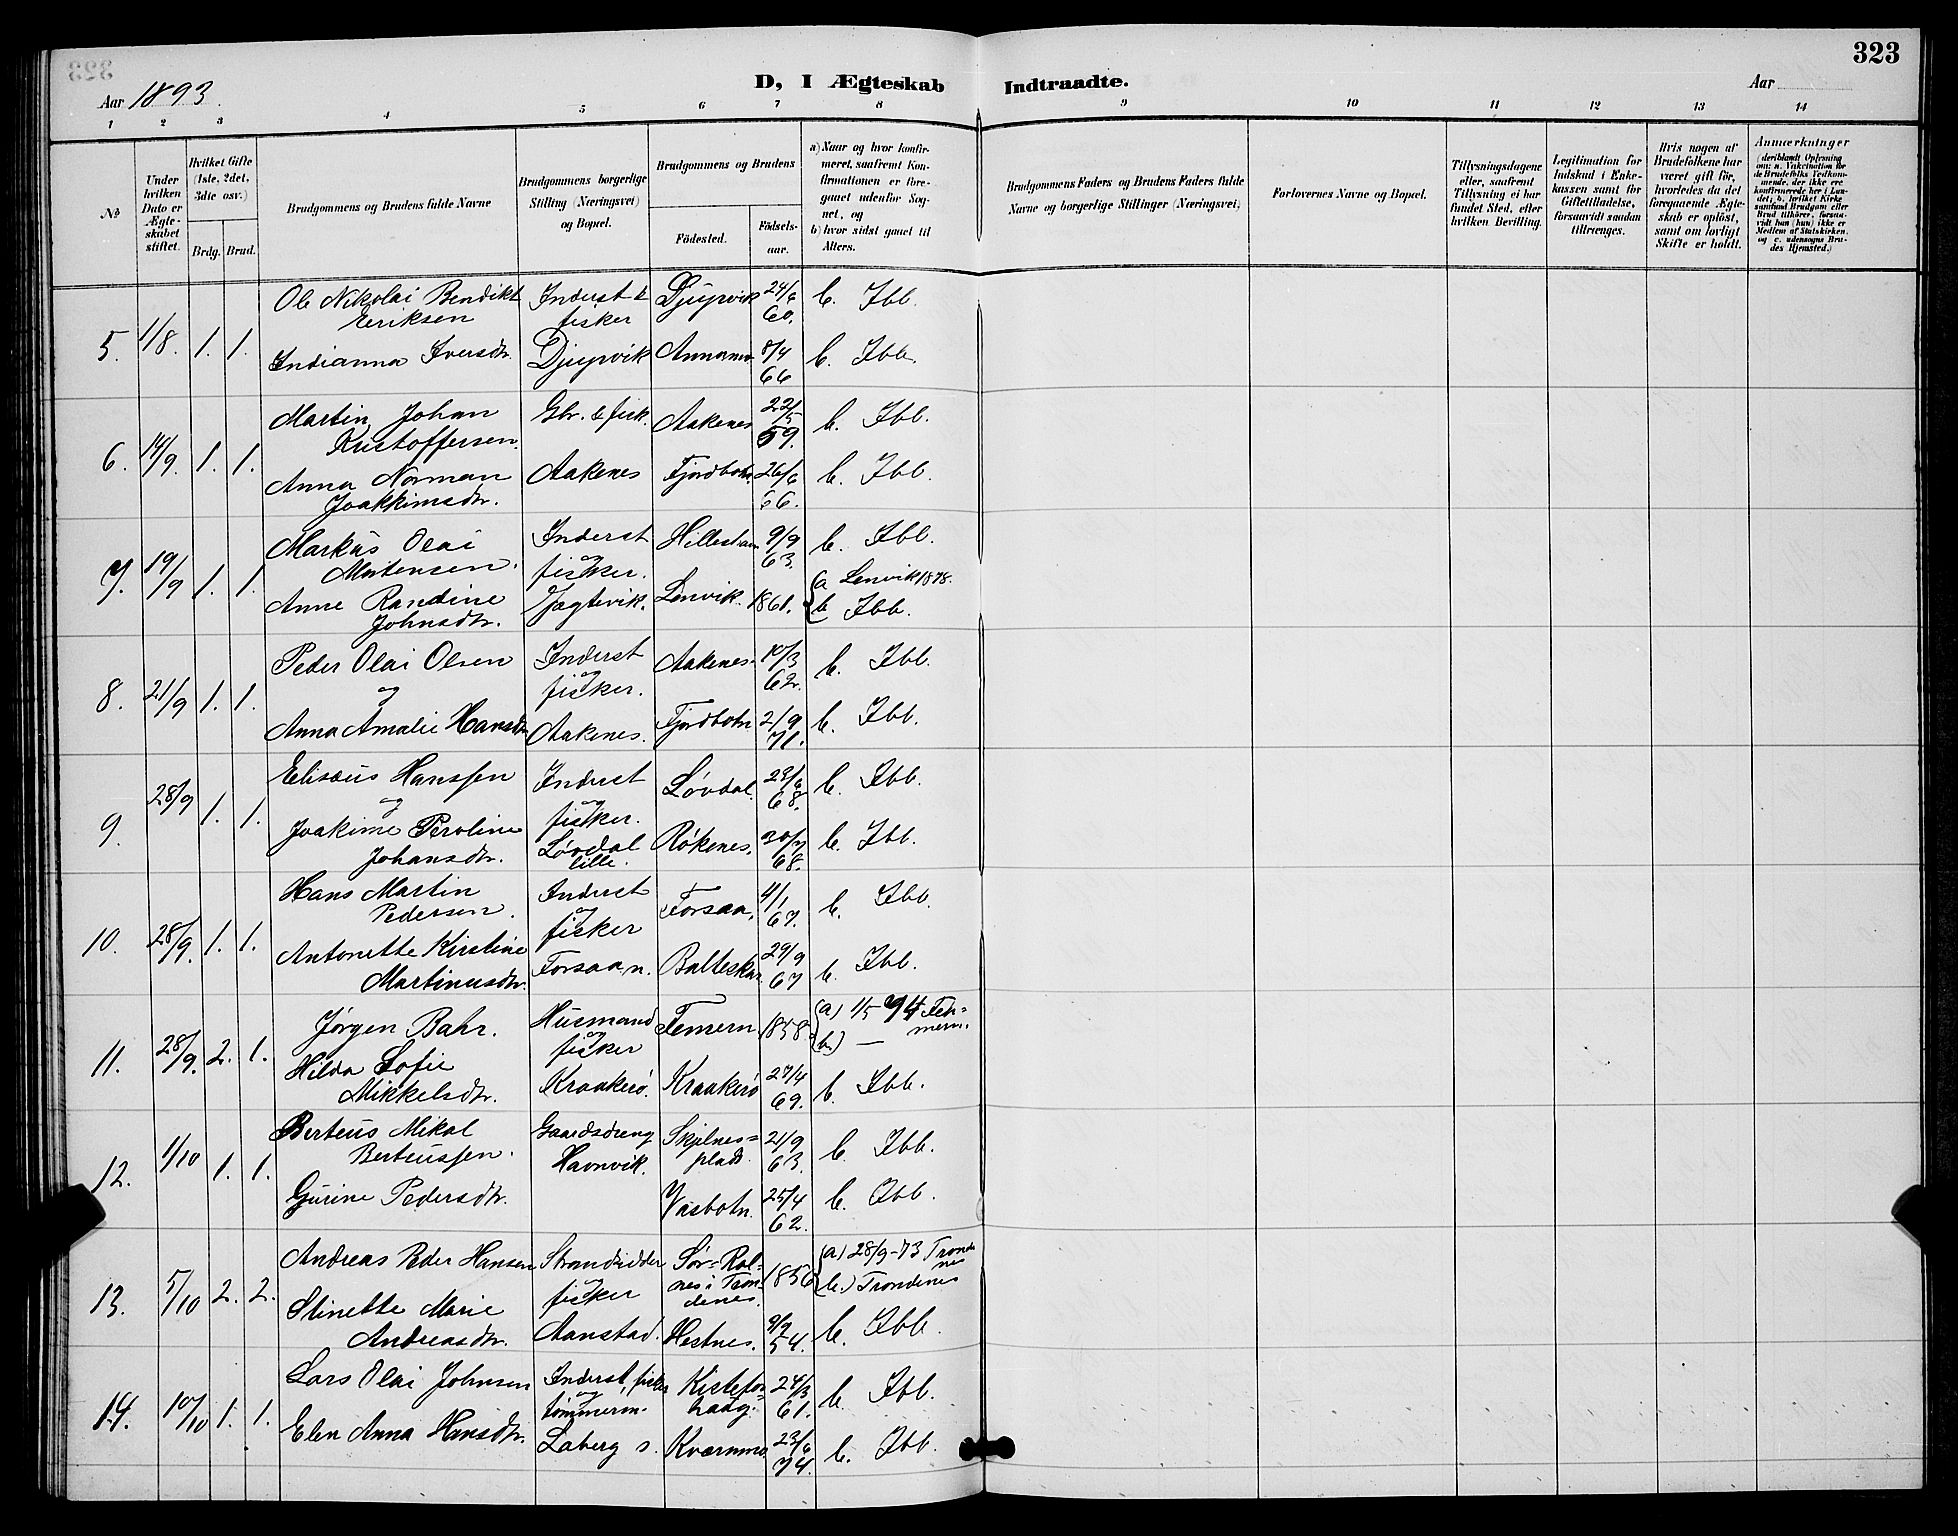 323
D, I Ægteskab Indtraadte.
Aar 1893.
Aar
1 2 3 4 5 6 7 8 9 10 11 12 13 14
№
Under hvilken Dato er Ægteskabet stiftet.
Hvilket Gifte (1ste, 2det, 3die osv.)
Brdg. Brud.
Brudgommens og Brudens fulde Navne
Brudgommens borgerlige Stilling (Næringsvei) og Bopæl.
Brudgommens og Brudens
Fødested.
Fødsels-aar.
a) Naar og hvor konfirmeret, saafremt Konfirmationen er foregaaet udenfor Sognet, og
b) hvor sidst gaaet til Alters.
Brudgommens Faders og Brudens Faders fulde Navne og borgerlige Stillinger (Næringsvei)
Forlovernes Navne og Bopæl.
Tillysningsdagene eller, saafremt Tillysning ei har fundet Sted, efter hvilken Bevilling.
Legitimation for Indskud i Enkekassen samt for Giftetilladelse, forsaavidt saadan tiltrænges.
Hvis nogen af Brudefolkene har været gift før, hvorledes da det foregaaende Ægteskab er opløst, samt om lovligt Skifte er holdt.
Anmærkninger
(deriblandt Oplysning om: a. Vakcination for de Brudefolks Vedkommende, der ikke ere konfirmerede her i Landet; b. hvilket Kirkesamfund Brudgom eller Brud tilhører, forsaavidt han (hun) ikke er Medlem af Statskirken, og c. udensogns Brudes Hjemsted.)
5. 1/8. 1. 1. Ole Nikolai Bendikt Eriksen Inderst & fisker Djupvik 24/6 60. b. Ibb.
Indianna Iversdtr. Djupvik 8/4 66 b. Ibb.
6. 14/9. 1. 1. Martin Johan Kristoffersen Gbr. & fisk. Aakenes 22/5 59. b. Ibb.
Anna Norman Joakkimsdtr. Aakenes Fjordbotn 26/6 66. b. Ibb.
7. 19/9 1. 1. Markus Olai Mortensen. Inderst og fisker. 9/9 63. b. Ibb.
Anne Randine Johnsdtr. Jagtevik. Lenvik. 1861. (a Lenvik 1878. b Ibb.
8. 21/9 1. 1. Peder Olai Olsen og Inderst og fisker. Aakenes 10/3 62. b. Ibb.
Anna Amalie Hansdtr Aakenes. Fjordbotn 2/9 71. b. Ibb.
9. 28/9 1. 1. Elisæus Hanssen og Inderst og fisker. Løvdal. 23/6 68. b. Ibb.
Joakime Peroline Johansdtr. Løvdal lille. Røkenes. 20/7 68. b. Ibb.
10. 28/9. 1. 1. Hans Martin Pedersen. Inderst og fisker Forsaa. 4/1 67. b. Ibb.
Antonette Kirstine Martinusdtr. Forsaa n. Balteskar 29/9 67 b. Ibb.
11. 28/9. 2. 1. Jørgen Bahr. Husmand og fisker Femern 1858. (a) 1/5 74 Fehmern. (b) —
Hilda Sofie Mikkelsdtr. Kraakerø. Kraakerø 27/4 69. b. Ibb.
12. 1/10 1. 1. Berteus Mikal Berteussen. Gaardsdreng Havnvik. Skjelnes-plads 21/9 63. b. Ibb.
Gurine Pedersdtr. Vasbotn. 25/4 62. b. Ibb.
13. 5/10 2. 2. Andreas Peder Hansen Strandsidder og fisker Sør-Rolnes i Trondenes. 1856 (a) 28/9-73 Trondenes (b.) Trondenes
Stinette Marie Andreasdtr. Aanstad. Hestnes. 9/9 54. b. Ibb.
14. 10/10 1. 1. Lars Olai Johnsen Inderst, fisker og tømmerm. 24/3 61. b. Ibb.
Elen Anna Hansdtr. Laberg s. Kværnmo 23/6 74. b. Ibb.